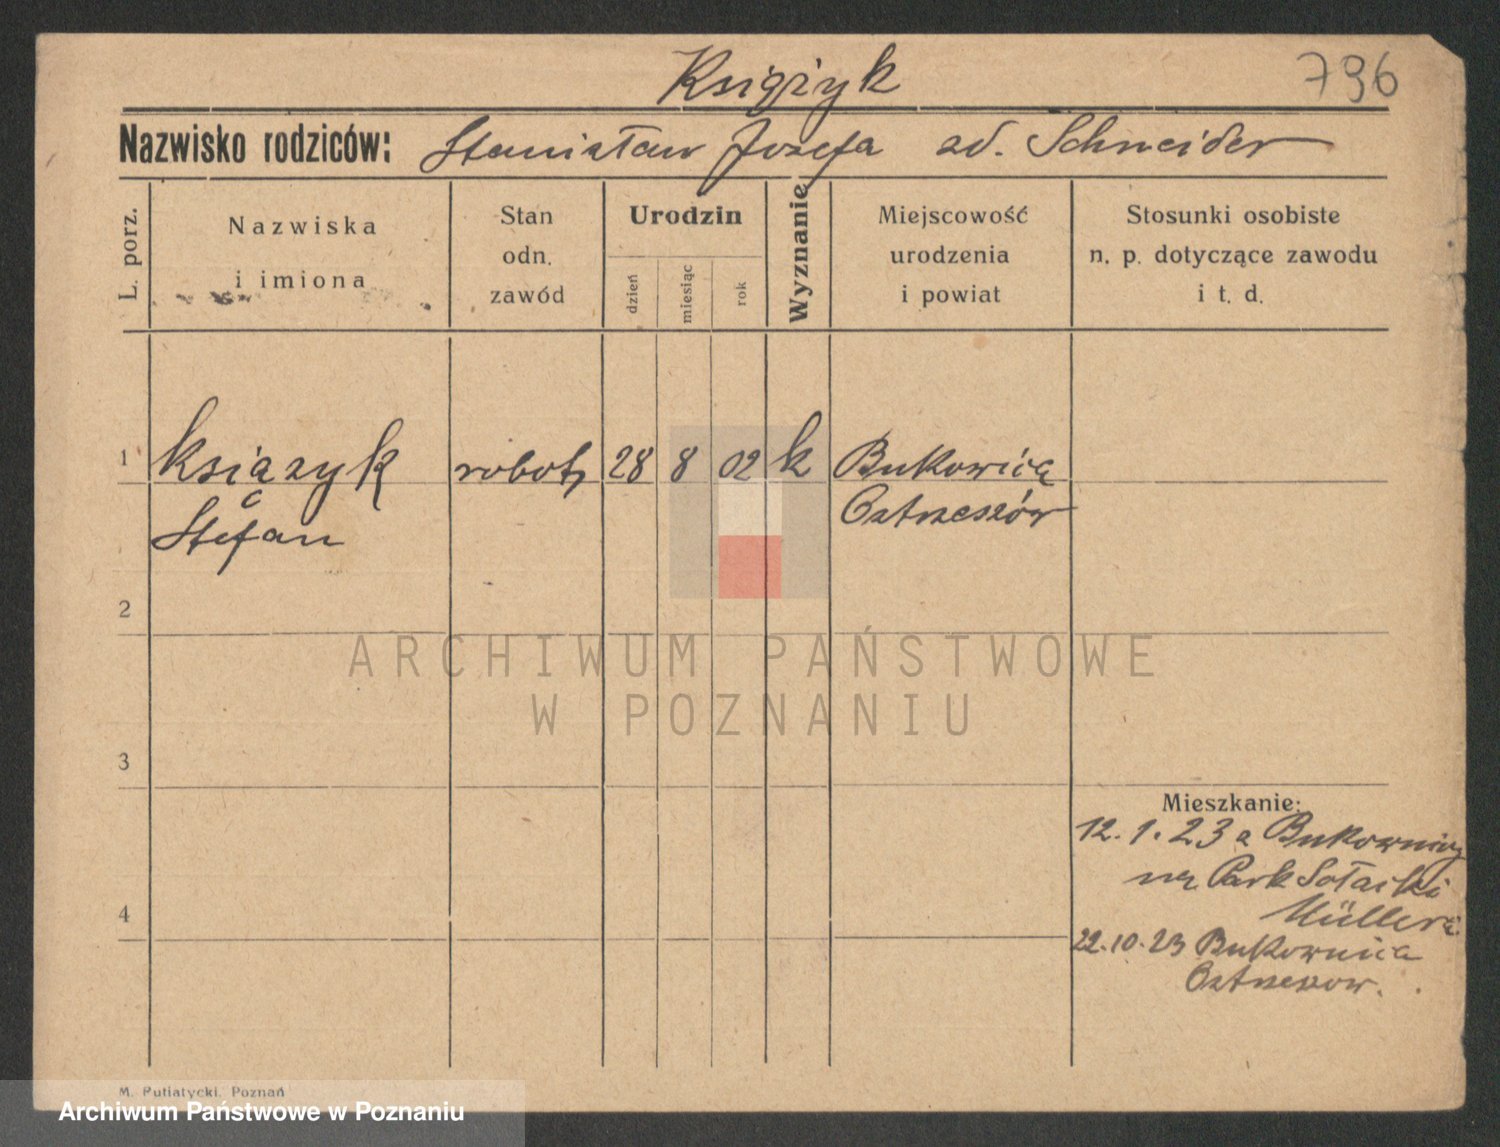 796
Książyk
Nazwisko rodziców: Stanisław Józefa zd. Schneider
L. porz.
Nazwiska
i imiona
Stan
odn.
zawód
Urodzin
dzień
miesiąc
rok
Wyznanie
Miejscowość
urodzenia
i powiat
Stosunki osobiste
n. p. dotyczące zawodu
i t. d.
1 Książyk robot. 28 8 02 k Bukowica
Stefan Ostrzeszów
2
ARCHIWUM PAŃSTWOWE
W POZNANIU
3
Mieszkanie:
12. 1. 23 z Bukownicy
na Park Sołacki
Müller
4
22.10.23 Bukownica
Ostrzeszow.
M. Putiatycki, Poznań
Archiwum Państwowe w Poznaniu